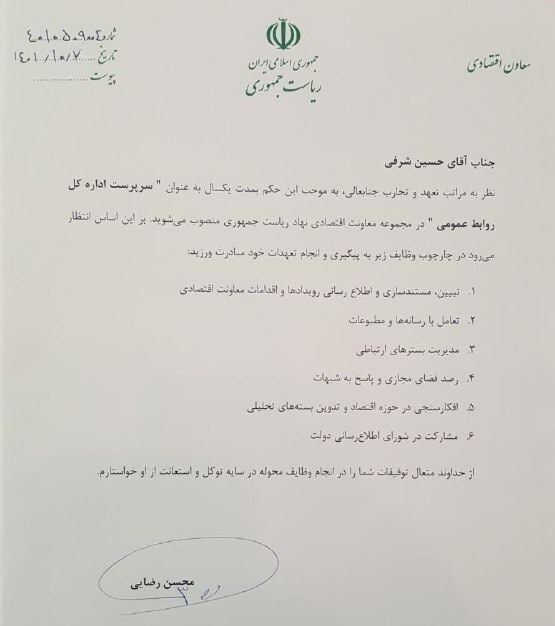 شماره ۴۰۱۰۵۰۹۰۰۴
تاریخ ۱۴۰۱/۱۰/۷
پیوست
جمهوری اسلامی ایران
ریاست جمهوری
معاون اقتصادی
جناب آقای حسین شرفی
نظر به مراتب تعهد و تجارب جنابعالی، به موجب این حکم بمدت یکسال به عنوان " سرپرست اداره کل
روابط عمومی " در مجموعه معاونت اقتصادی نهاد ریاست جمهوری منصوب می‌شوید. بر این اساس انتظار
می‌رود در چارچوب وظایف زیر به پیگیری و انجام تعهدات خود مبادرت ورزید:
۱. تبیین، مستندسازی و اطلاع رسانی رویدادها و اقدامات معاونت اقتصادی
۲. تعامل با رسانه‌ها و مطبوعات
۳. مدیریت بسترهای ارتباطی
۴. رصد فضای مجازی و پاسخ به شبهات
۵. افکارسنجی در حوزه اقتصاد و تدوین بسته‌های تحلیلی
۶. مشارکت در شورای اطلاع‌رسانی دولت
از خداوند متعال توفیقات شما را در انجام وظایف محوله در سایه توکل و استعانت از او خواستارم.
محسن رضایی